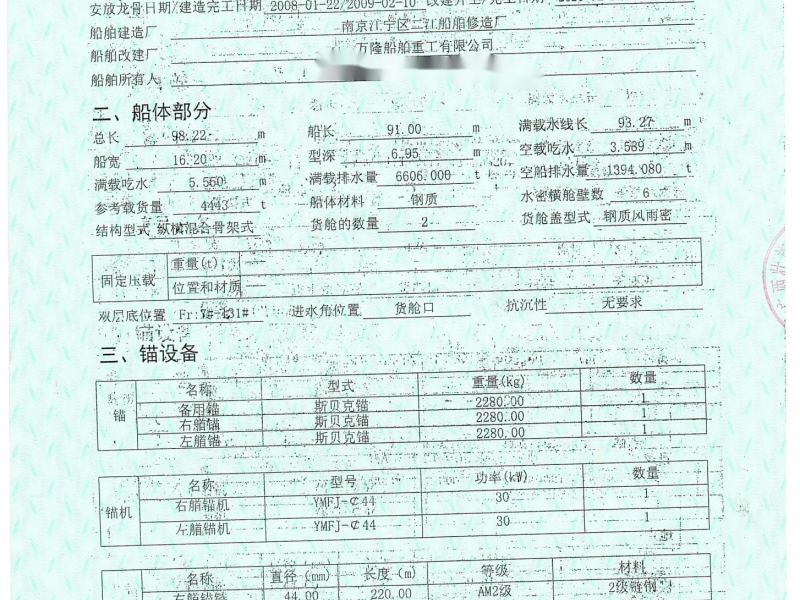 安放龙骨日期/建造完工日期 2008-01-22/2009-02-10
船舶建造厂 南京江宁区二江船舶修造厂
船舶改建厂 万隆船舶重工有限公司
船舶所有人
二、船体部分
总长 98.22 m 船长 91.00 m 满载水线长 93.27 m
船宽 16.20 m 型深 6.95 m 空载吃水 m
满载吃水 5.550 m 满载排水量 6606.000 t 空船排水量 1394.080 t
参考载货量 4443 t 船体材料 钢质 水密横舱壁数 6
结构型式 纵横混合骨架式 货舱的数量 2 货舱盖型式 钢质风雨密
固定压载 重量(t)
位置和材质
双层底位置 Fr:7#-131# 进水角位置 货舱口 抗沉性 无要求
三、锚设备
锚 名称 型式 重量(kg) 数量
备用锚 斯贝克锚 2280.00 1
右艏锚 斯贝克锚 2280.00 1
左艏锚 斯贝克锚 2280.00 1
锚机 名称 型号 功率(kW) 数量
右艏锚机 YMFJ-¢44 30 1
左艏锚机 YMFJ-¢44 30 1
名称 直径(mm) 长度(m) 等级 材料
右艏锚链 44.00 220.00 AM2级 2级链钢